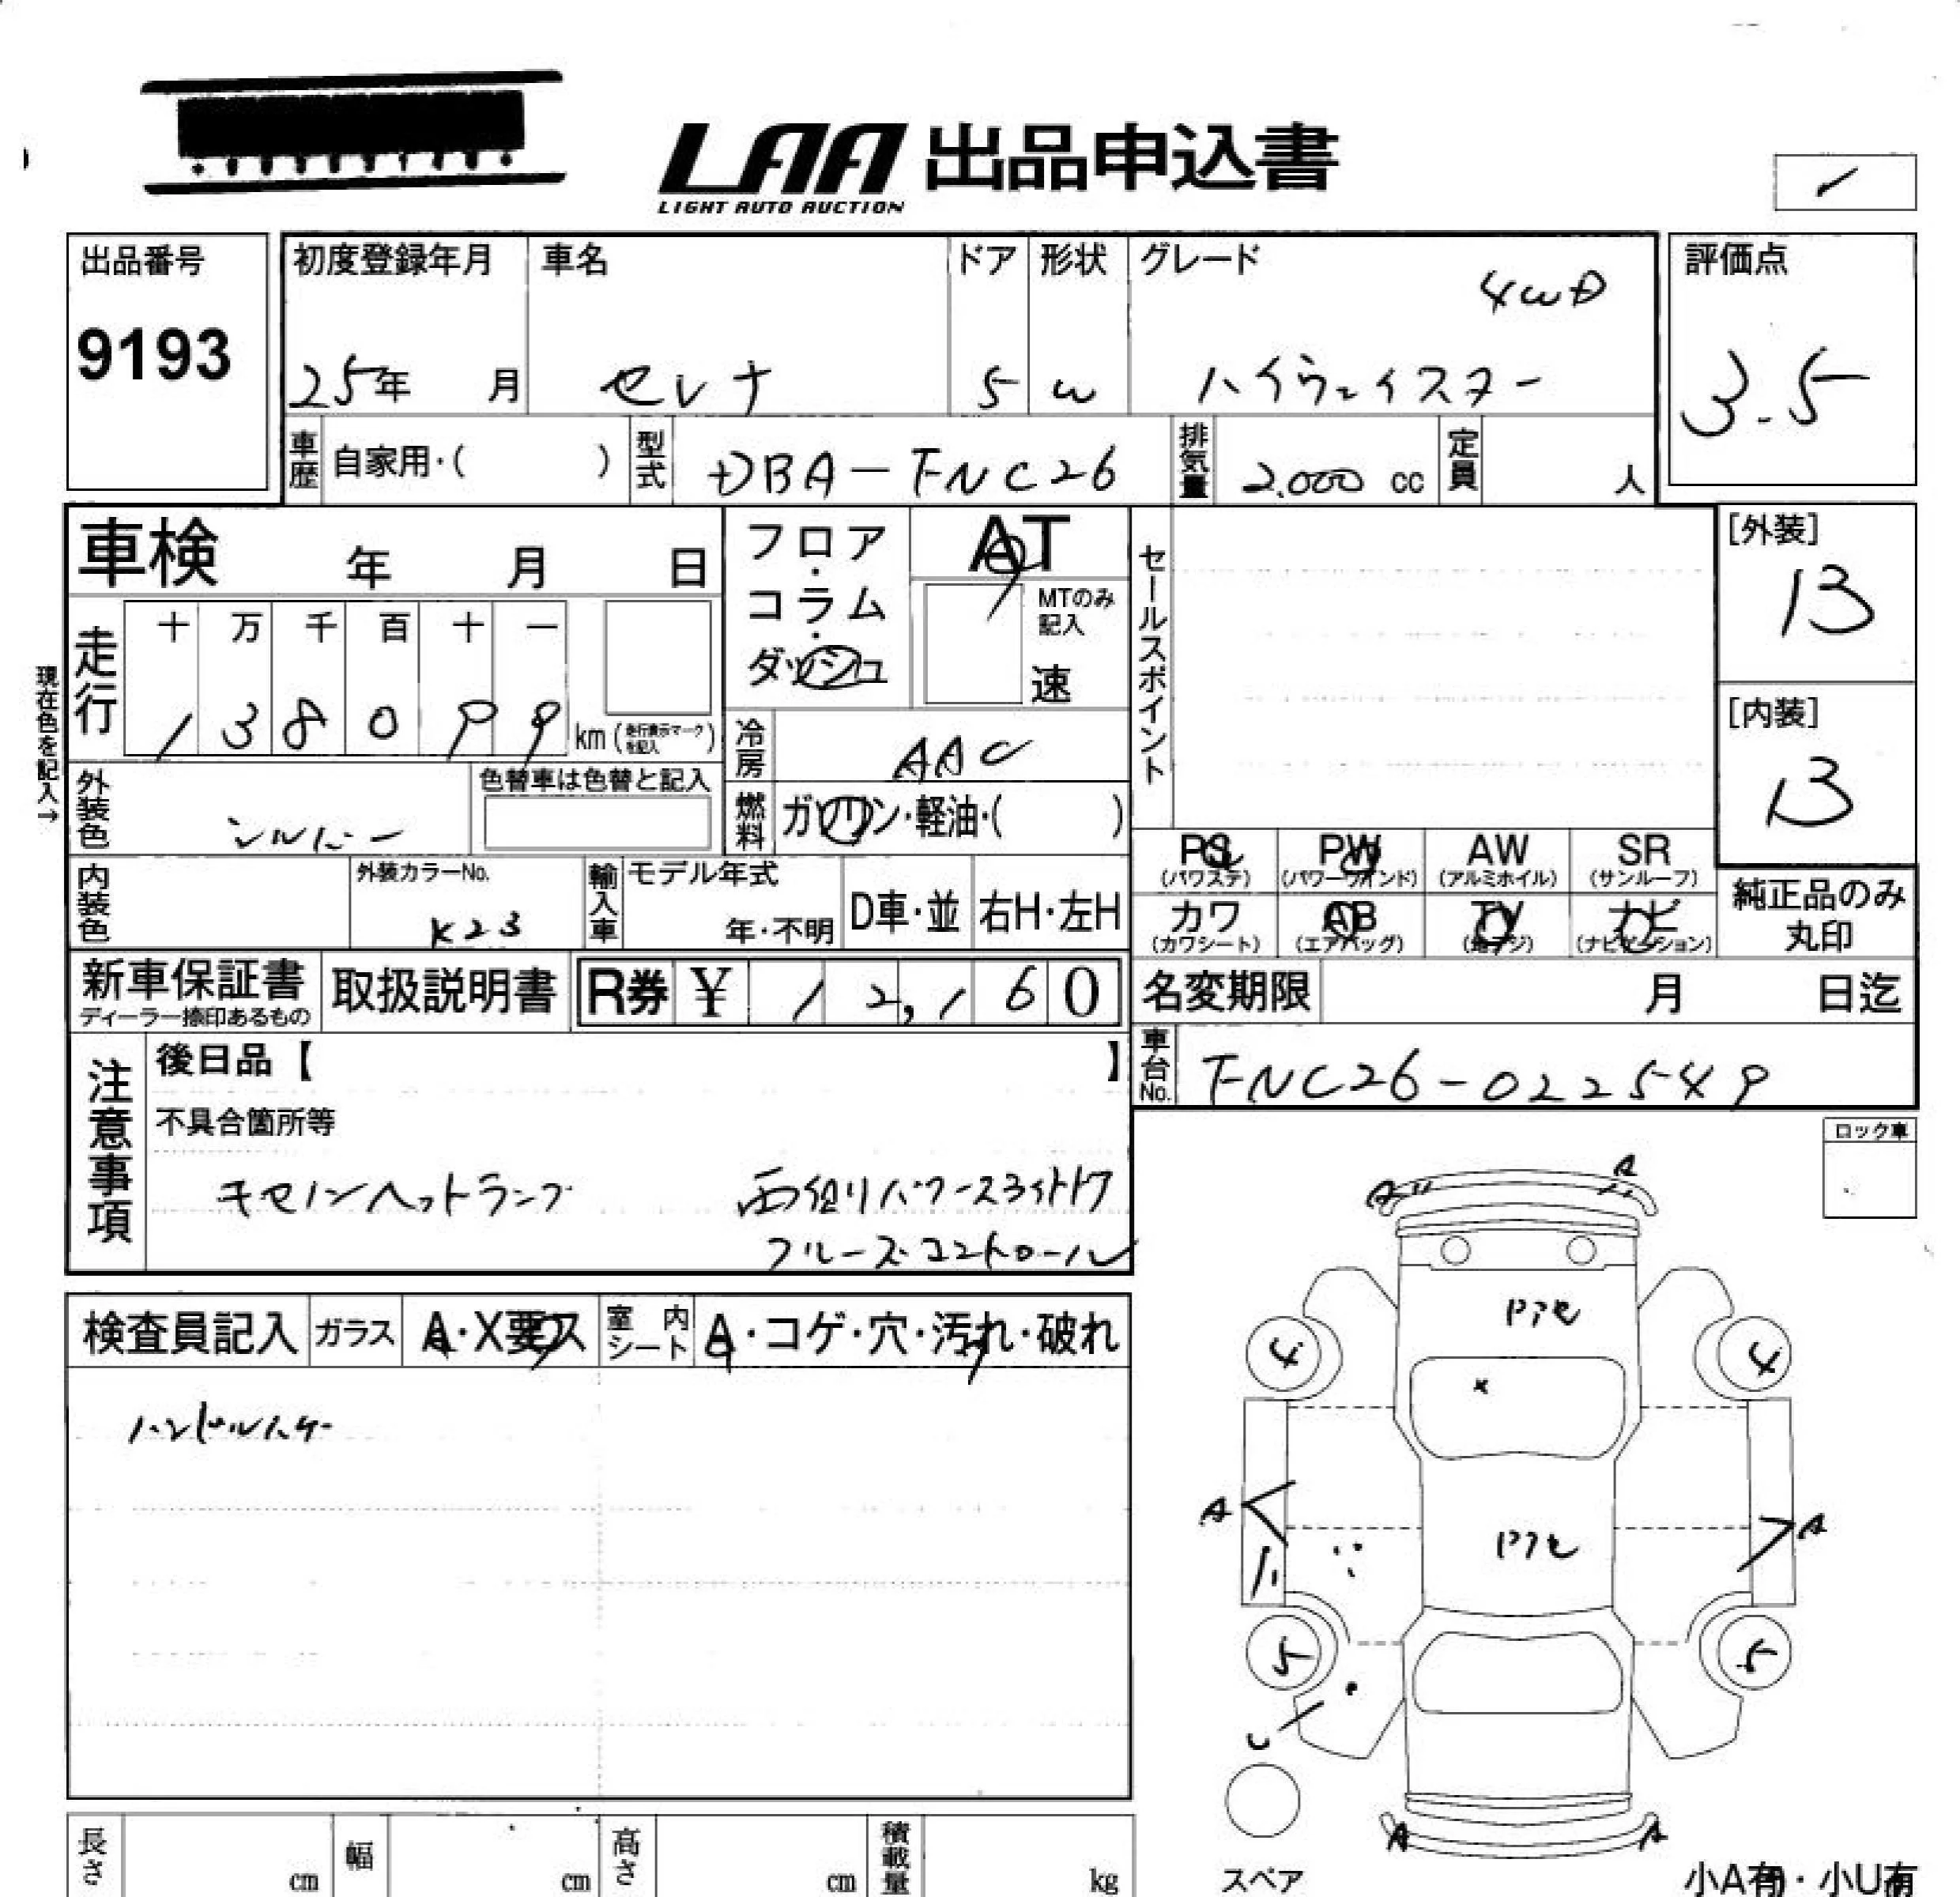 LAA 出品申込書
LIGHT AUTO AUCTION
出品番号
9193
初度登録年月
25年 月
車名
セレナ
ドア
5
形状
W
グレード
4WD
ハイウェイスター
評価点
3.5
車歴
自家用・( )
型式
DBA-FNC26
排気量
2.000 cc
定員
人
車検 年 月 日
フロア・コラム・ダッシュ
AT
MTのみ記入
速
セールスポイント
[外装]
B
[内装]
B
現在色を記入→
走行
十 万 千 百 十 一
1 3 8 0 9 9 km (走行表示マークを記入)
冷房
AAC
外装色
シルバー
色替車は色替と記入
燃料
ガソリン・軽油・( )
内装色
外装カラーNo.
K23
輸入車
モデル年式
年・不明
D車・並
右H・左H
PS
(パワステ)
PW
(パワーウインド)
AW
(アルミホイル)
SR
(サンルーフ)
カワ
(カワシート)
AB
(エアバッグ)
TV
(地デジ)
ナビ
(ナビゲーション)
純正品のみ
丸印
新車保証書
ディーラー捺印あるもの
取扱説明書
R券 ¥ 12,160
名変期限 月 日迄
車台No.
FNC26-022549
注意事項
後日品【 】
不具合箇所等
キセノンヘットランプ
両側パワースライドドア
クルーズコントロール
ロック車
検査員記入
ガラス
A・X要ス
室内シート
A・コゲ・穴・汚れ・破れ
ハンドルスレ
A
A
4
4
x
A
A
5
5
U
A
A
スペア
長さ cm
幅 cm
高さ cm
積載量 kg
小A有・小U有